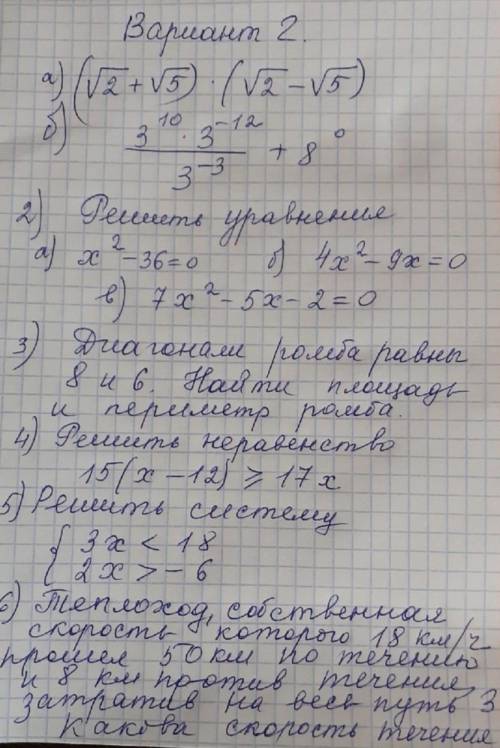 Вариант 2.
а) (√2 + √5) · (√2 − √5)
б) 3^10 · 3^-12 / 3^-3 + 8^0
2) Решить уравнения
а) x² - 36 = 0 б) 4x² - 9x = 0
в) 7x² - 5x - 2 = 0
3) Диагонали ромба равны
8 и 6. Найти площадь
и периметр ромба.
4) Решить неравенство
15(x - 12) ⩾ 17x
5) Решить систему
{ 3x < 18
{ 2x > - 6
6) Теплоход, собственная
скорость которого 18 км/ч
прошел 50 км по течению
и 8 км против течения,
затратив на весь путь 3
Какова скорость течения